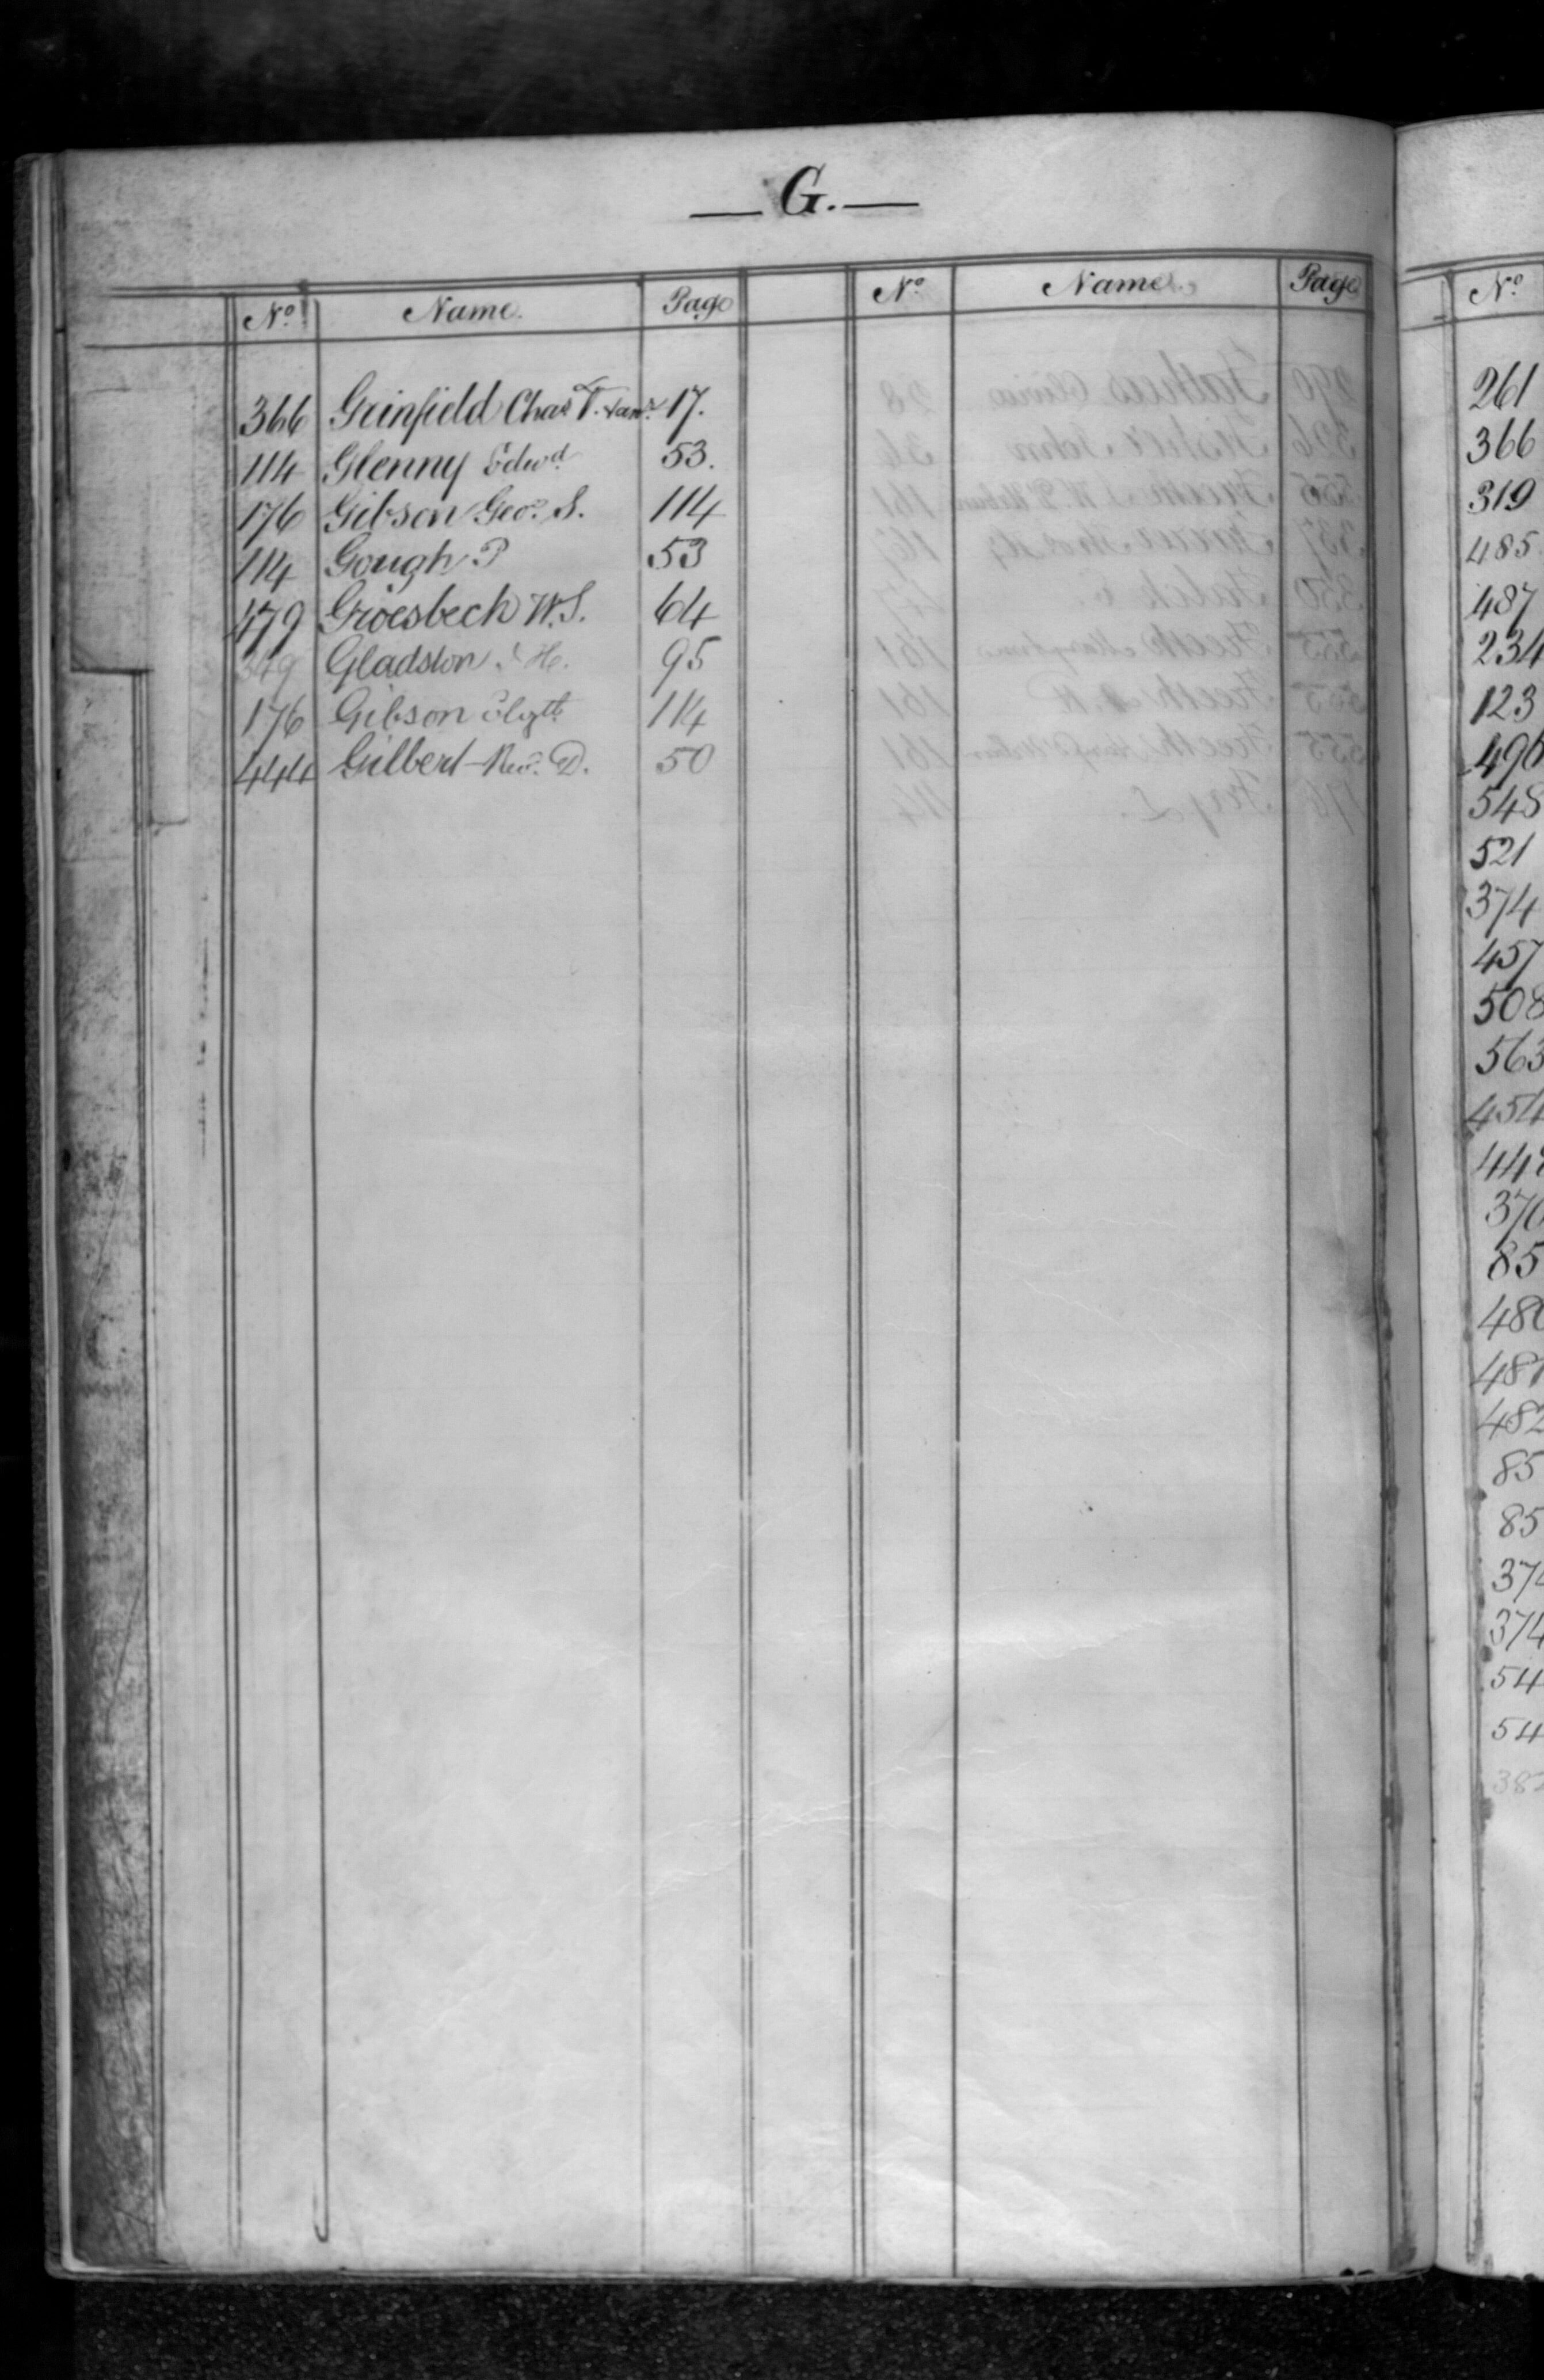 G.
No Name. Page No Name. Page No
366 Grinfield Chas T. 17.
114 Glenny Edwd 53.
176 Gibson Geo. S. 114
114 Gough P 53
479 Groesbeck W.S. 64
349 Gladston J H. 95
176 Gibson Elizth 114
444 Gilbert Rev. D. 50
261
366
319
485
487
234
123
496
548
521
374
457
508
563
454
448
370
85
480
481
482
85
85
374
374
54
54
382